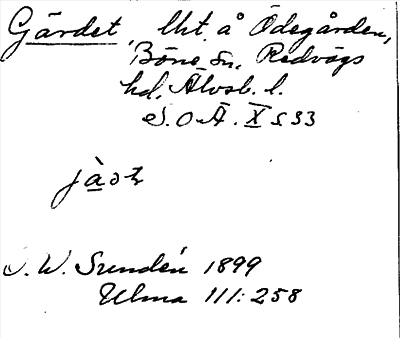 Gärdet, lht. å Ödegården,
Böne sn, Redvägs
hd, Älvsb. l.
S. O Ä. X s 33
D. W. Sundén 1899
Ulma 111: 258